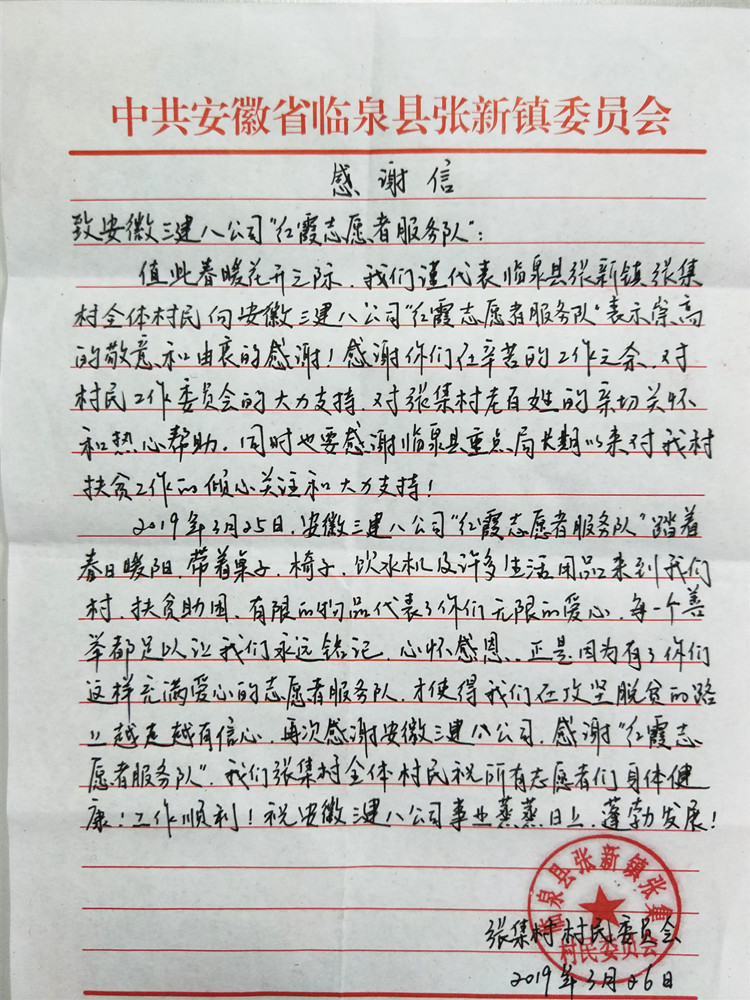 中共安徽省临泉县张新镇委员会
感谢信
致安徽三建八公司"红霞志愿者服务队":
值此春暖花开之际，我们谨代表临泉县张新镇张集
村全体村民向安徽三建八公司"红霞志愿者服务队"表示崇高
的敬意和由衷的感谢！感谢你们在辛苦的工作之余，对
村民工作委员会的大力支持，对张集村老百姓的亲切关怀
和热心帮助。同时也要感谢临泉县重点局长期以来对我村
扶贫工作的倾心关注和大力支持！
2019年3月25日，安徽三建八公司"红霞志愿者服务队"踏着
春日暖阳，带着桌子、椅子、饮水机及许多生活用品来到我们
村，扶贫助困，有限的物品代表了你们无限的爱心，每一个善
举都足以让我们永远铭记，心怀感恩。正是因为有了你们
这样充满爱心的志愿者服务队，才使得我们在攻坚脱贫的路
上越走越有信心，再次感谢安徽三建八公司，感谢"红霞志
愿者服务队"，我们张集村全体村民祝所有志愿者们身体健
康！工作顺利！祝安徽三建八公司事业蒸蒸日上，蓬勃发展！
临泉县张新镇张集
村民委员会
张集村村民委员会
2019年3月26日